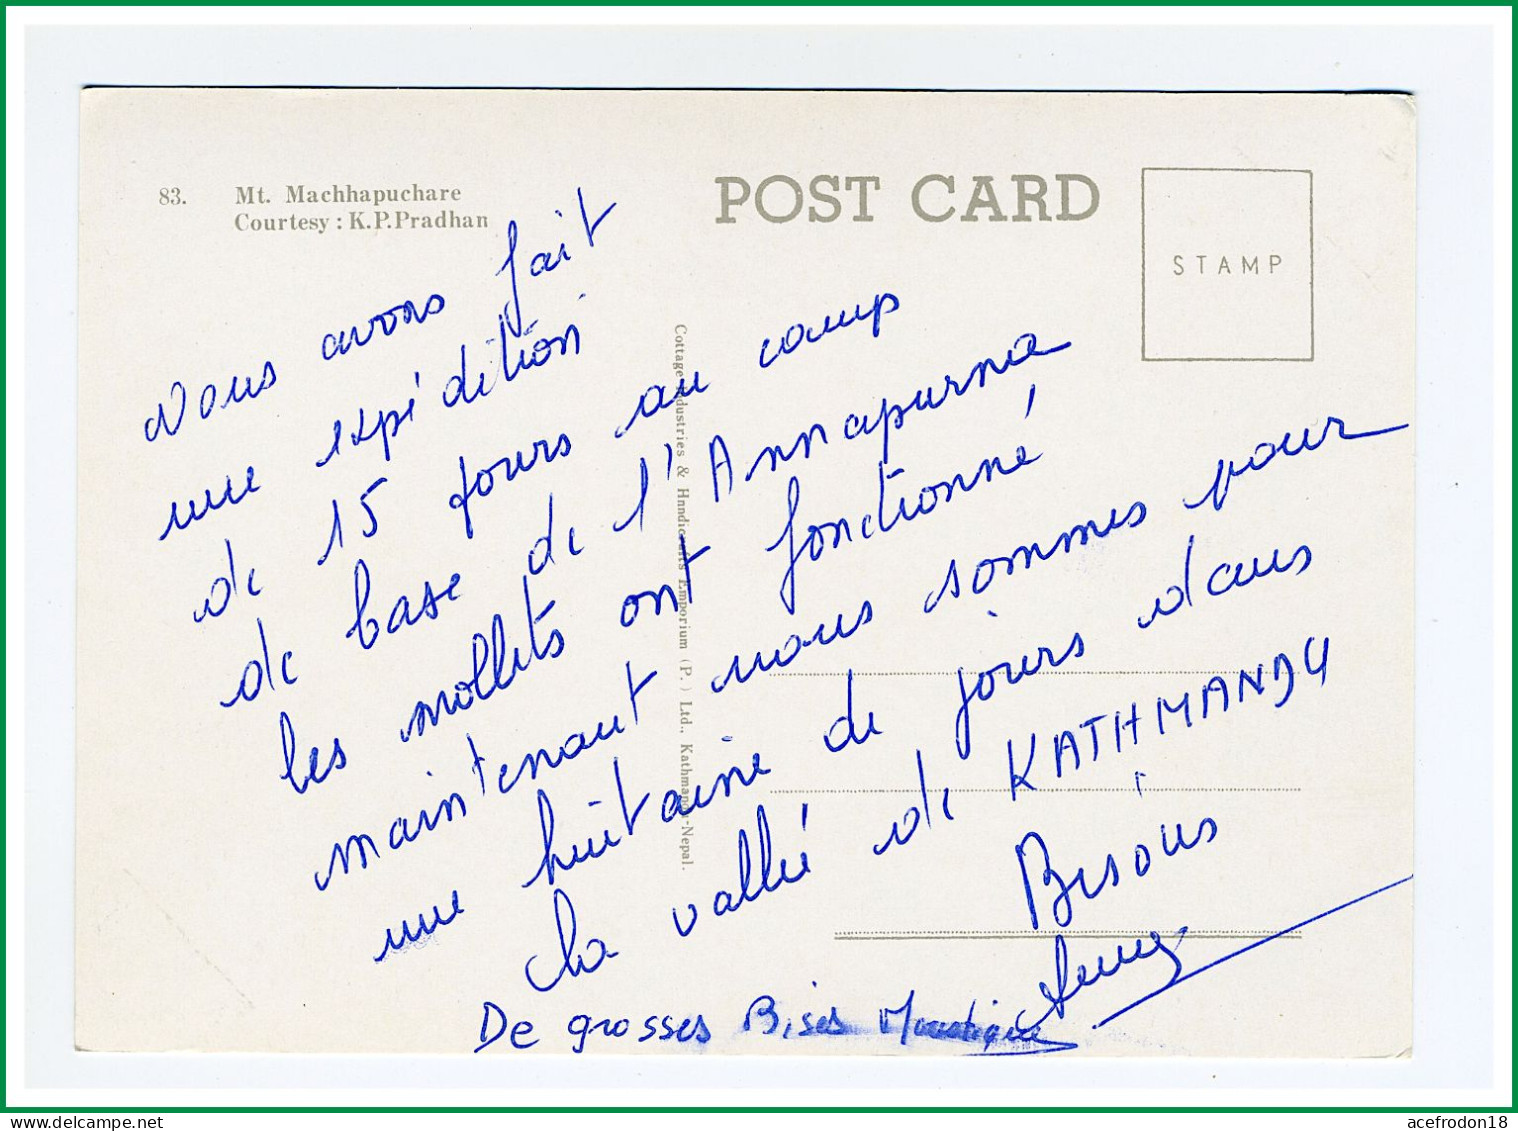 83. Mt. Machhapuchare
Courtesy : K.P.Pradhan
POST CARD
STAMP
Nous avons fait
une expédition
de 15 jours au camp
de base de l'Annapurna
les mollets ont fonctionné,
maintenant nous sommes pour
une huitaine de jours dans
la vallée de KATHMANDU
Bisous
De grosses Bises
Cottage Industries & Hnndicrafts Emporium (P.) Ltd., Kathmandu-Nepal.
acefrodon18